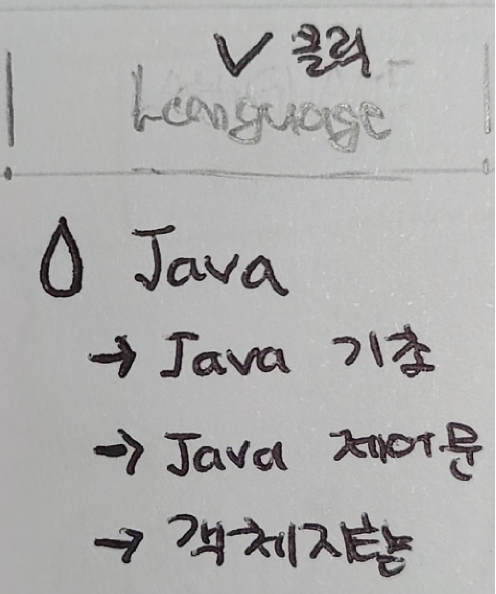 V 클릭
Language
Java
→ Java 기초
→ Java 제어문
→ 객체지향